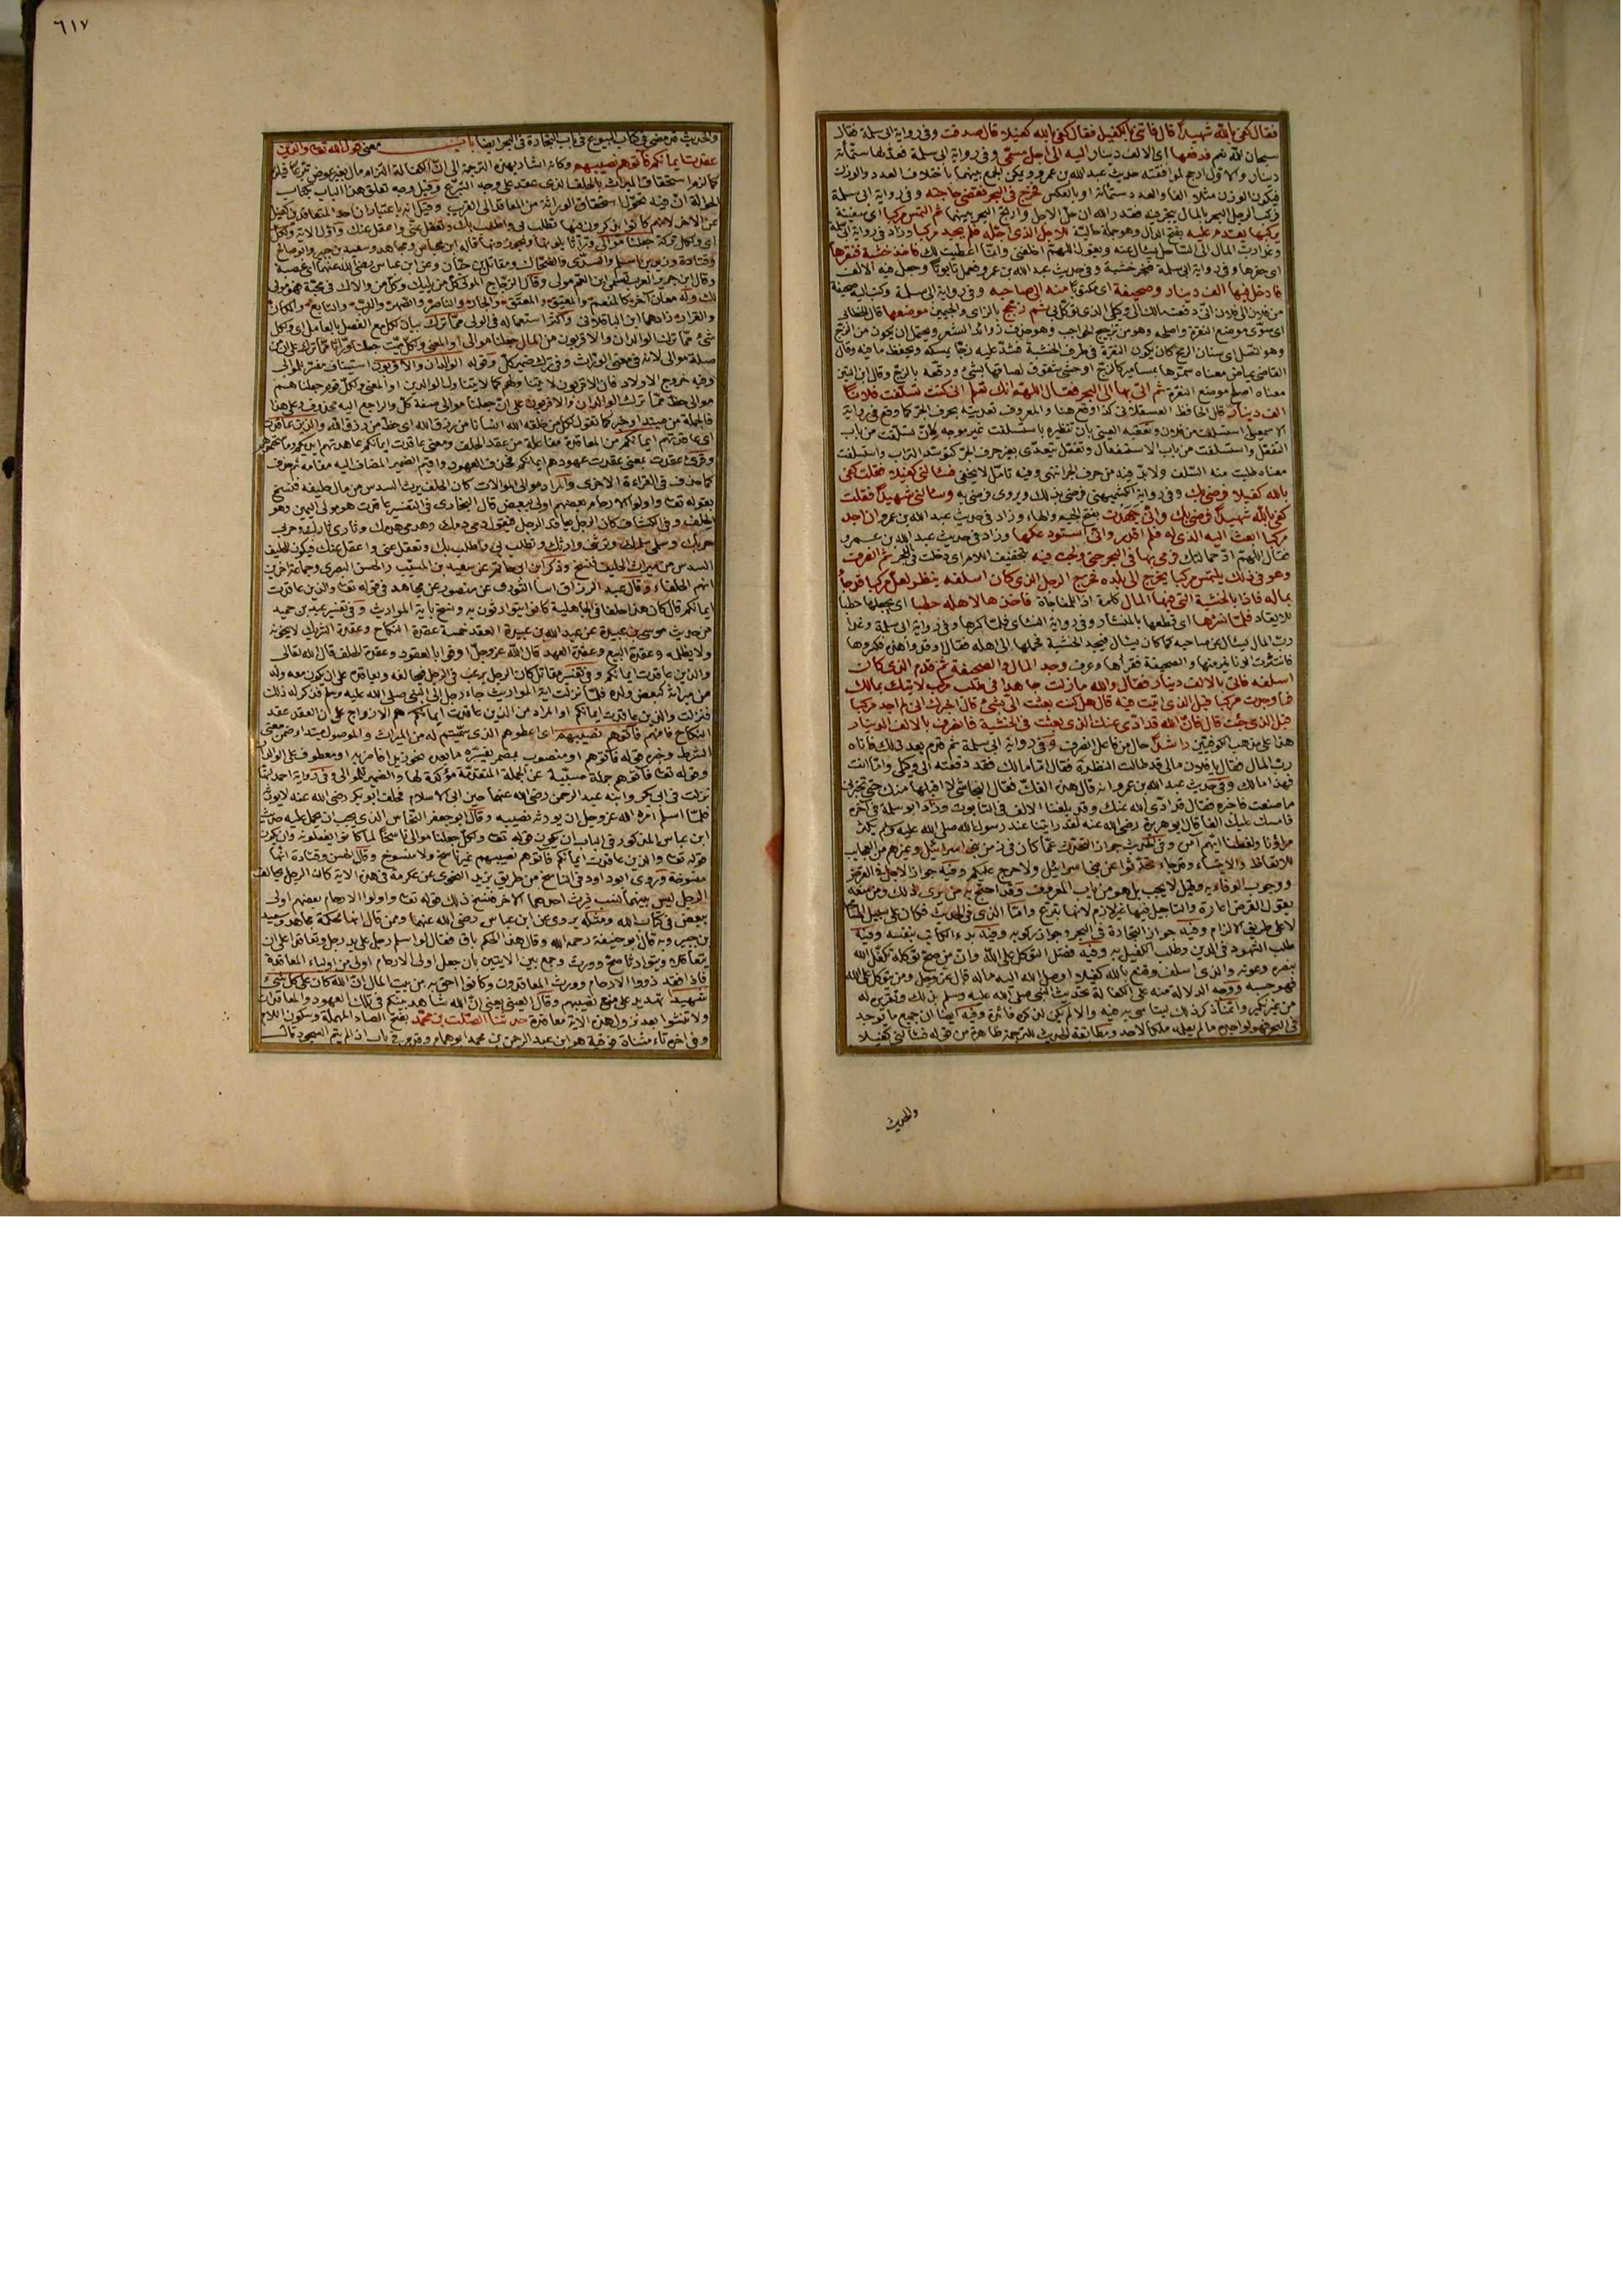 فقال كفى بالله شهيدا قال فاتنى بالكفيل فقال كفى بالله كفيلا قال صدقت وفى رواية ابى سلمة فقال
سبحان الله نعم فدفعها اى الالف دينار اليه الى اجل مسمى وفى رواية ابى سلمة فعدّ له ستمأته
دينار والاول ارجح لموافقته حديث عبد الله بن عمرو ويمكن الجمع بينهما باختلاف العدد والوزن
فيكون الوزن مثلا الفا والعدد ستمأته او بالعكس فخرج فى البحر فقضى حاجته وفى رواية ابى سلمة
فركب الرجل البحر بالمال يتجر فيه فقدر الله ان حلّ الاجل وارتج البحر بينهما ثم التمس مركبا اى سفينة
يركبها يقدم عليه بفتح الدال وهو جملة حالية الاجل الذى اجّله فلم يجد مركبا وزاد فى رواية ابى سلمة
وغدا رب المال الى الساحل يسأل عنه ويقول اللهم اخلفنى وانما اعطيت لك فاخذ خشبة فنقرها
اى حفرها وفى رواية ابى سلمة فنجر خشبة وفى حديث عبد الله بن عمرو فعمل تابوتا وجعل فيه الالف
فادخل فيها الف دينار وصحيفة اى مكتوبا منه الى صاحبه وفى رواية ابى سلمة وكتب اليه صحيفة
من فلان الى فلان انى دفعت مالك الى وكيلى الذى توكل بى ثم زجج بالزاى والجيمين موضعها قال الخطابى
اى سوّى موضع النقر واصلحه وهو من تزجيج الحواجب وهو حذف زوائد الشعر ويحتمل ان يكون من الزج
وهو النصل اى سنان الرمح كان يكون النقر فى طرف الخشبة فشدّ عليه زجّا يمسكه ويحفظ ما فيه وقال
القاضى عياض معناه سمّرها بمسامير كالزج او حشى شقوق لصاقها بشئ ورقعه بالزج وقال ابن التين
معناه اصلح موضع النقر ثم اتى بها الى البحر فقال اللهم انك تعلم انى كنت تسلفت فلانا
الف دينار قال الحافظ العسقلانى كذا وقع هنا والمعروف تعديته بحرف الجر كما وقع فى رواية
الاسمعيلى استسلفت من فلان وتعقبه العينى بان تنظيره باستسلفت غير موجه لان تسلفت من باب
التفعّل واستسلفت من باب الاستفعال وتفعّل يتعدّى بغير حرف الجرّ كتوسّد التراب واستسلفت
معناه طلبت منه السلف ولا بدّ فيه من حرف الجر انتهى وفيه تأمل لا يخفى فسألنى كفيلا فقلت كفى
بالله كفيلا فرضى بك وفى رواية الكشميهنى فرضى بذلك ويروى فرضى به وسألنى شهيدا فقلت
كفى بالله شهيدا فرضى بك وانى جهدت بفتح الجيم والهاء وزاد فى حديث عبد الله بن عمرو ان اجد
مركبا ابعث اليه الذى له فلم اقدر وانى استودعكها وزاد فى حديث عبد الله بن عمرو
فقال اللهم ادّ حمالتك فرمى بها فى البحر حتى ولجت فيه بتخفيف اللام اى دخلت فى البحر ثم انصرف
وهو فى ذلك يلتمس مركبا يخرج الى بلده فخرج الرجل الذى كان اسلفه ينظر لعل مركبا قد جاء
بماله فاذا بالخشبة التى فيها المال كلمة اذا للمفاجاة فاخذها لاهله حطبا اى يجعلها حطبا
للايقاد فلمّا نشرها اى قطعها بالمنشار وفى رواية النسائى فلمّا كسرها وفى رواية ابى سلمة وغدا
رب المال يسأل عن صاحبه كما كان يسأل فيجد الخشبة فحملها الى اهله فقال اوقدوا هذه فكسروها
فانتثرت الدنانير منها والصحيفة فقرأها وعرف وجد المال والصحيفة ثم قدم الذى كان
اسلفه فاتى بالالف دينار فقال والله مازلت جاهدا فى طلب مركب لاتيك بمالك
فما وجدت مركبا قبل الذى اتيت فيه قال هل كنت بعثت الى بشئ قال اخبرك انى لم اجد مركبا
قبل الذى جئت قال فان الله قد ادّى عنك الذى بعثت فى الخشبة فانصرف بالالف الدينار
هذا على مذهب الكوفيين راشدا حال من فاعل انصرف وفى رواية ابى سلمة ثم قدم بعد ذلك فاتاه
رب المال فقال يا فلان مالى قد طالت النظرة فقال اما مالك فقد دفعته الى وكيلى واما انت
فهذا مالك وفى حديث عبد الله بن عمرو انه قال هذه الفك فقال النجاشى لا اقبلها منك حتى تخبرنى
ما صنعت فاخبره فقال قد ادّى الله عنك وقد بلغنا الالف فى التابوت وزاد ابو سلمة فى آخره
فامسك عليك الفا قال ابو هريرة رضى الله عنه لقد رايتنا عند رسول الله صلى الله عليه وسلم يكثر
مراؤنا ولغطنا ايهم آمن وفى الحديث جواز التحدّث عمّا كان فى زمن بنى اسرائيل وغيرهم من العجايب
للاتعاظ والايتساء وقد جاء تحدّثوا عن بنى اسرائيل ولا حرج عليكم وفيه جواز الاجل فى القرض
ووجوب الوفاء به وقيل لا يجب بل هو من باب المعروف وقد احتج به من يرى ذلك ومن منعه
يقول القرض اعارة والتاجيل فيها غير لازم لانها تبرّع وامّا الذى فى الحديث فكان على سبيل المسامحة
لا على طريق الالزام وفيه جواز التجارة فى البحر وجواز ركوبه وفيه بدء الكاتب بنفسه وفيه
طلب الشهود فى الدين وطلب الكفيل به وفيه فضل التوكل على الله وانّ من صح توكله تكفّل الله
بنصره وعونه والذى اسلف وقنع بالله كفيلا اوصل الله اليه ماله قال عز وجل ومن يتوكل على الله
فهو حسبه ووجه الدلالة منه على الكفالة تحديث النبى صلى الله عليه وسلم بذلك وتقريره له
من غير نكير وانما ذكر ذلك ليتأسى به فيه والا لم يكن لذكره فائدة وفيه ايضا ان جميع ما يوجد
فى البحر فهو لواجده ما لم يعلمه ملكا لاحد ومطابقة الحديث للترجمة ظاهرة من قوله فسألنى كفيلا
والحديث
٦١٧
والحديث قد مضى فى كتاب البيوع فى باب التجارة فى البحر ايضا باب معنى قول الله تعالى والذين
عقدت ايمانكم فآتوهم نصيبهم وكانه اشار بهذه الترجمة الى انّ الكفالة التزام مال بغير عوض تبرّعا فيلزم
كما لزم استحقاق الميراث بالحلف الذى عقد على وجه التبرّع وقيل وجه تعلق هذا الباب بكتاب
الحوالة انّ فيه تحوّل استحقاق الوراثة من العاقد الى القريب وقيل انه باعتبار ان احد المتعاقدين كفيل
عن الآخر لانهم كانوا يذكرون فيها تطلب بى واطلب بك وتعقل عنّى واعقل عنك واوّل الآية ولكل
وقتادة وزيد بن اسلم والسدّى والضحاك ومقاتل بن حيّان وعن ابن عباس رضى الله عنهما اى عصبة
شئ ممّا ترك الوالدان والاقربون من المال جعلنا موالى او المعنى ولكل ميّت جعلنا ورّاثا ممّا ترك
صلة موالى لانه فى معنى الورّاث وفى ترك ضمير كلّ وقوله الوالدان والاقربون استيناف مفسّر للموالى
وفيه خروج الاولاد فان الاقربون لا يتناولهم كما لا يتناول الوالدين او المعنى ولكل قوم جعلناهم
موالى حظّ ممّا ترك الوالدان والاقربون على انّ جعلنا موالى صفة كلّ والراجع اليه محذوف وعلى هذا
فالجملة من مبتدا وخبر كما تقول لكل من خلقه الله انسانا من رزق الله اى حظّ من رزق الله والذين عاقدت
وقرئ عقدت بمعنى عقدت عهودهم ايمانكم فحذف العهود واقيم الضمير المضاف اليه مقامه ثم حذف
كما حذف فى القراءة الاخرى والمراد موالى الموالات كان الحليف يرث السدس من مال حليفه فنسخ
بقوله تعالى واولوا الارحام بعضهم اولى ببعض قال البخارى فى التفسير عاقدت هو مولى اليمين وهو
الحلف وفى الكشاف كان الرجل يعاقد الرجل فيقول دمى دمك وهدمى هدمك وثارى ثارك وحربى
حربك وسلمى سلمك وترثنى وارثك وتطلب بى واطلب بك وتعقل عنى واعقل عنك فيكون للحليف
السدس من ميراث الحليف فنسخ وذكر ابن ابى حاتم عن سعيد بن المسيّب والحسن البصرى وجماعة آخرين
انهم الحلفاء وقال عبد الرزاق انبأ الثورى عن منصور عن مجاهد فى قوله تعالى والذين عاقدت
ايمانكم قال كان هذا حلفا فى الجاهلية كانوا يتوارثون به ونسخ باية المواريث وفى تفسير عبد بن حميد
من حديث موسى بن عبيدة عن عبد الله بن عبيدة العقد خمسة عقدة النكاح وعقدة الشريك لا يخونه
ولا يظلمه وعقدة البيع وعقدة العهد قال الله عز وجلّ اوفوا بالعقود وعقدة الحلف قال الله تعالى
والذين عاقدت ايمانكم وفى تفسير مقاتل كان الرجل يرغب فى الرجل فيحالفه ويعاقده على ان يكون معه وله
من ميراثه كبعض ولده فلمّا نزلت آية المواريث جاء رجل الى النبى صلى الله عليه وسلم فذكر له ذلك
فنزلت والذين عاقدت ايمانكم او المراد من الذين عاقدت ايمانكم هم الازواج على ان العقد عقد
النكاح فآتوهم نصيبهم اى اعطوهم الذى سمّيتم له من الميراث والموصول مبتدا وضمن معنى
الشرط وخبره قوله فآتوهم او منصوب بمضمر يفسّره ما بعده نحو زيدا فاضربه او معطوف على الوالدان
وقوله تعالى فآتوهم جملة مسبّبة عن الجملة المتقدّمة مؤكدة لها والضمير للموالى وفى رواية احمد انها
نزلت فى ابى بكر وابنه عبد الرحمن رضى الله عنهما حين ابى الاسلام فحلف ابو بكر رضى الله عنه لا يورثه
فلمّا اسلم امره الله عز وجل ان يورثه نصيبه وقال ابو جعفر النحاس الذى يجب ان يحمل عليه حديث
ابن عباس المذكور فى الباب ان يكون قوله تعالى ولكل جعلنا موالى ناسخا لما كانوا يفعلونه وان يكون
قوله تعالى والذين عاقدت ايمانكم فآتوهم نصيبهم غير ناسخ ولا منسوخ وقال الحسن وقتادة انها
منسوخة وروى ابو داود فى الناسخ من طريق يزيد النحوى عن عكرمة فى هذه الآية كان الرجل يحالف
الرجل ليس بينهما نسب فيرث احدهما الآخر فنسخ ذلك قوله تعالى واولوا الارحام بعضهم اولى
ببعض فى كتاب الله ومثله يروى عن ابن عباس رضى الله عنهما وممن قال انها محكمة مجاهد وسعيد
بن جبير وبه قال ابو حنيفة رحمه الله وقال هذا الحكم باق فقال لو اسلم رجل على يد رجل وتعاقدا على ان
يتعاقلا ويتوارثا صحّ وورث وجمع بين الآيتين بأن جعل اولى الارحام اولى من اولياء المعاقدة
فاذا فقد ذووا الارحام وورث المعاقدون وكانوا احق به من بيت المال انّ الله كان على كل شئ
شهيدا تهديد على منع نصيبهم وقال العينى يعنى انّ الله شاهد بينكم فى تلك العهود والمعاقدات
ولا تنشئوا بعد نزول هذه الآية معاقدة حدثنا الصّلت بن محمّد بفتح الصاد المهملة وسكون اللام
وفى آخره تاء مثناة فوقية هو ابن عبد الرحمن بن محمد ابو همام وقد مر فى باب اذا لم يتم السجود قال